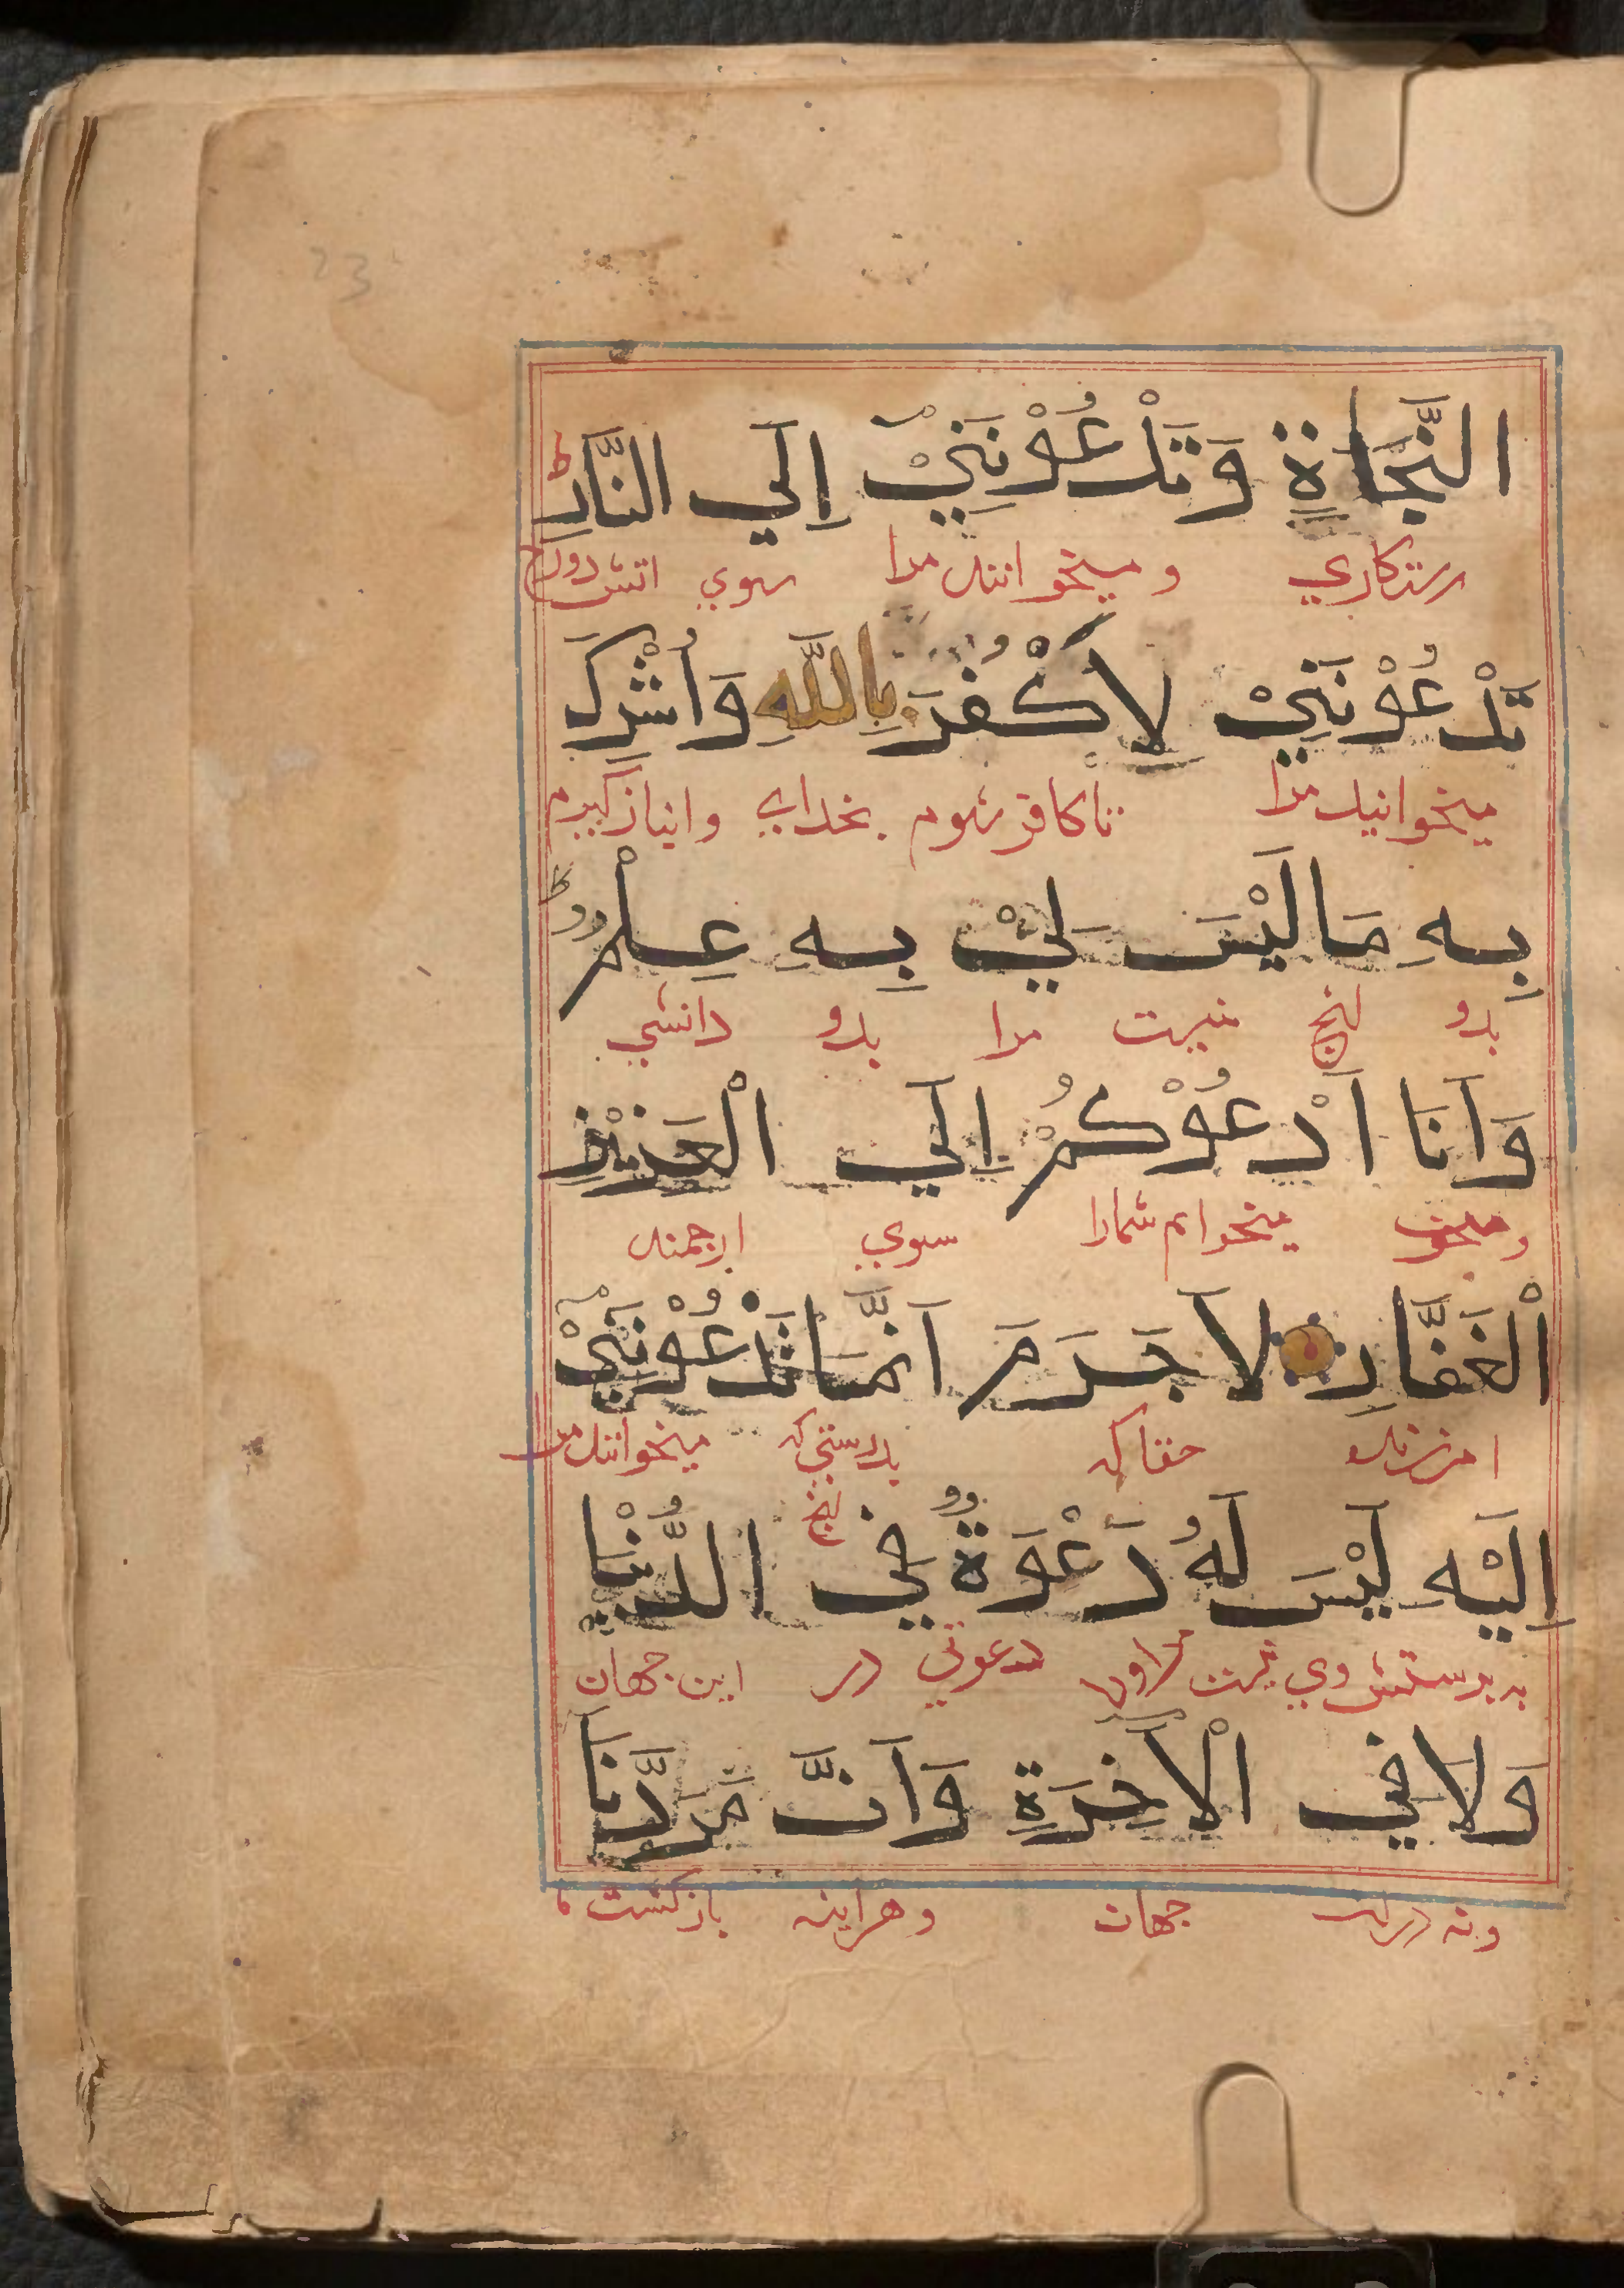 النَّجَاةِ وَتَدْعُوْنَنِيْ إِلَي النَّارِ ط
رستكاري وميخوانند مرا سوي اتش دوزخ
تَدْعُوْنَنِيْ لِاَكْفُرَ بِاللّٰهِ وَاُشْرِكَ
ميخوانيد مرا تا كافر شوم بخداي وانباز كيرم
بِهِ مَالَيْسَ لِيْ بِهِ عِلْمٌ ط
بدو انچ نيست مرا بدو دانشي
وَاَنَا اَدْعُوْكُمْ اِلَي الْعَزِيْزِ
ميخوانم شمارا سوي ارجمند
الْغَفَّارِ لَاجَرَمَ اَنَّمَا تَدْعُوْنَنِيْ
امرزنده حقا كه بدرستي كه انچ ميخوانند مرا
اِلَيْهِ لَيْسَ لَهُ دَعْوَةٌ فِي الدُّنْيَا
به پرستش وي نيست مراورا دعوتي در اين جهان
وَلَا فِي الْاٰخِرَةِ وَاَنَّ مَرَدَّنَا
ونه دران جهان وهراينه بازكشت ما